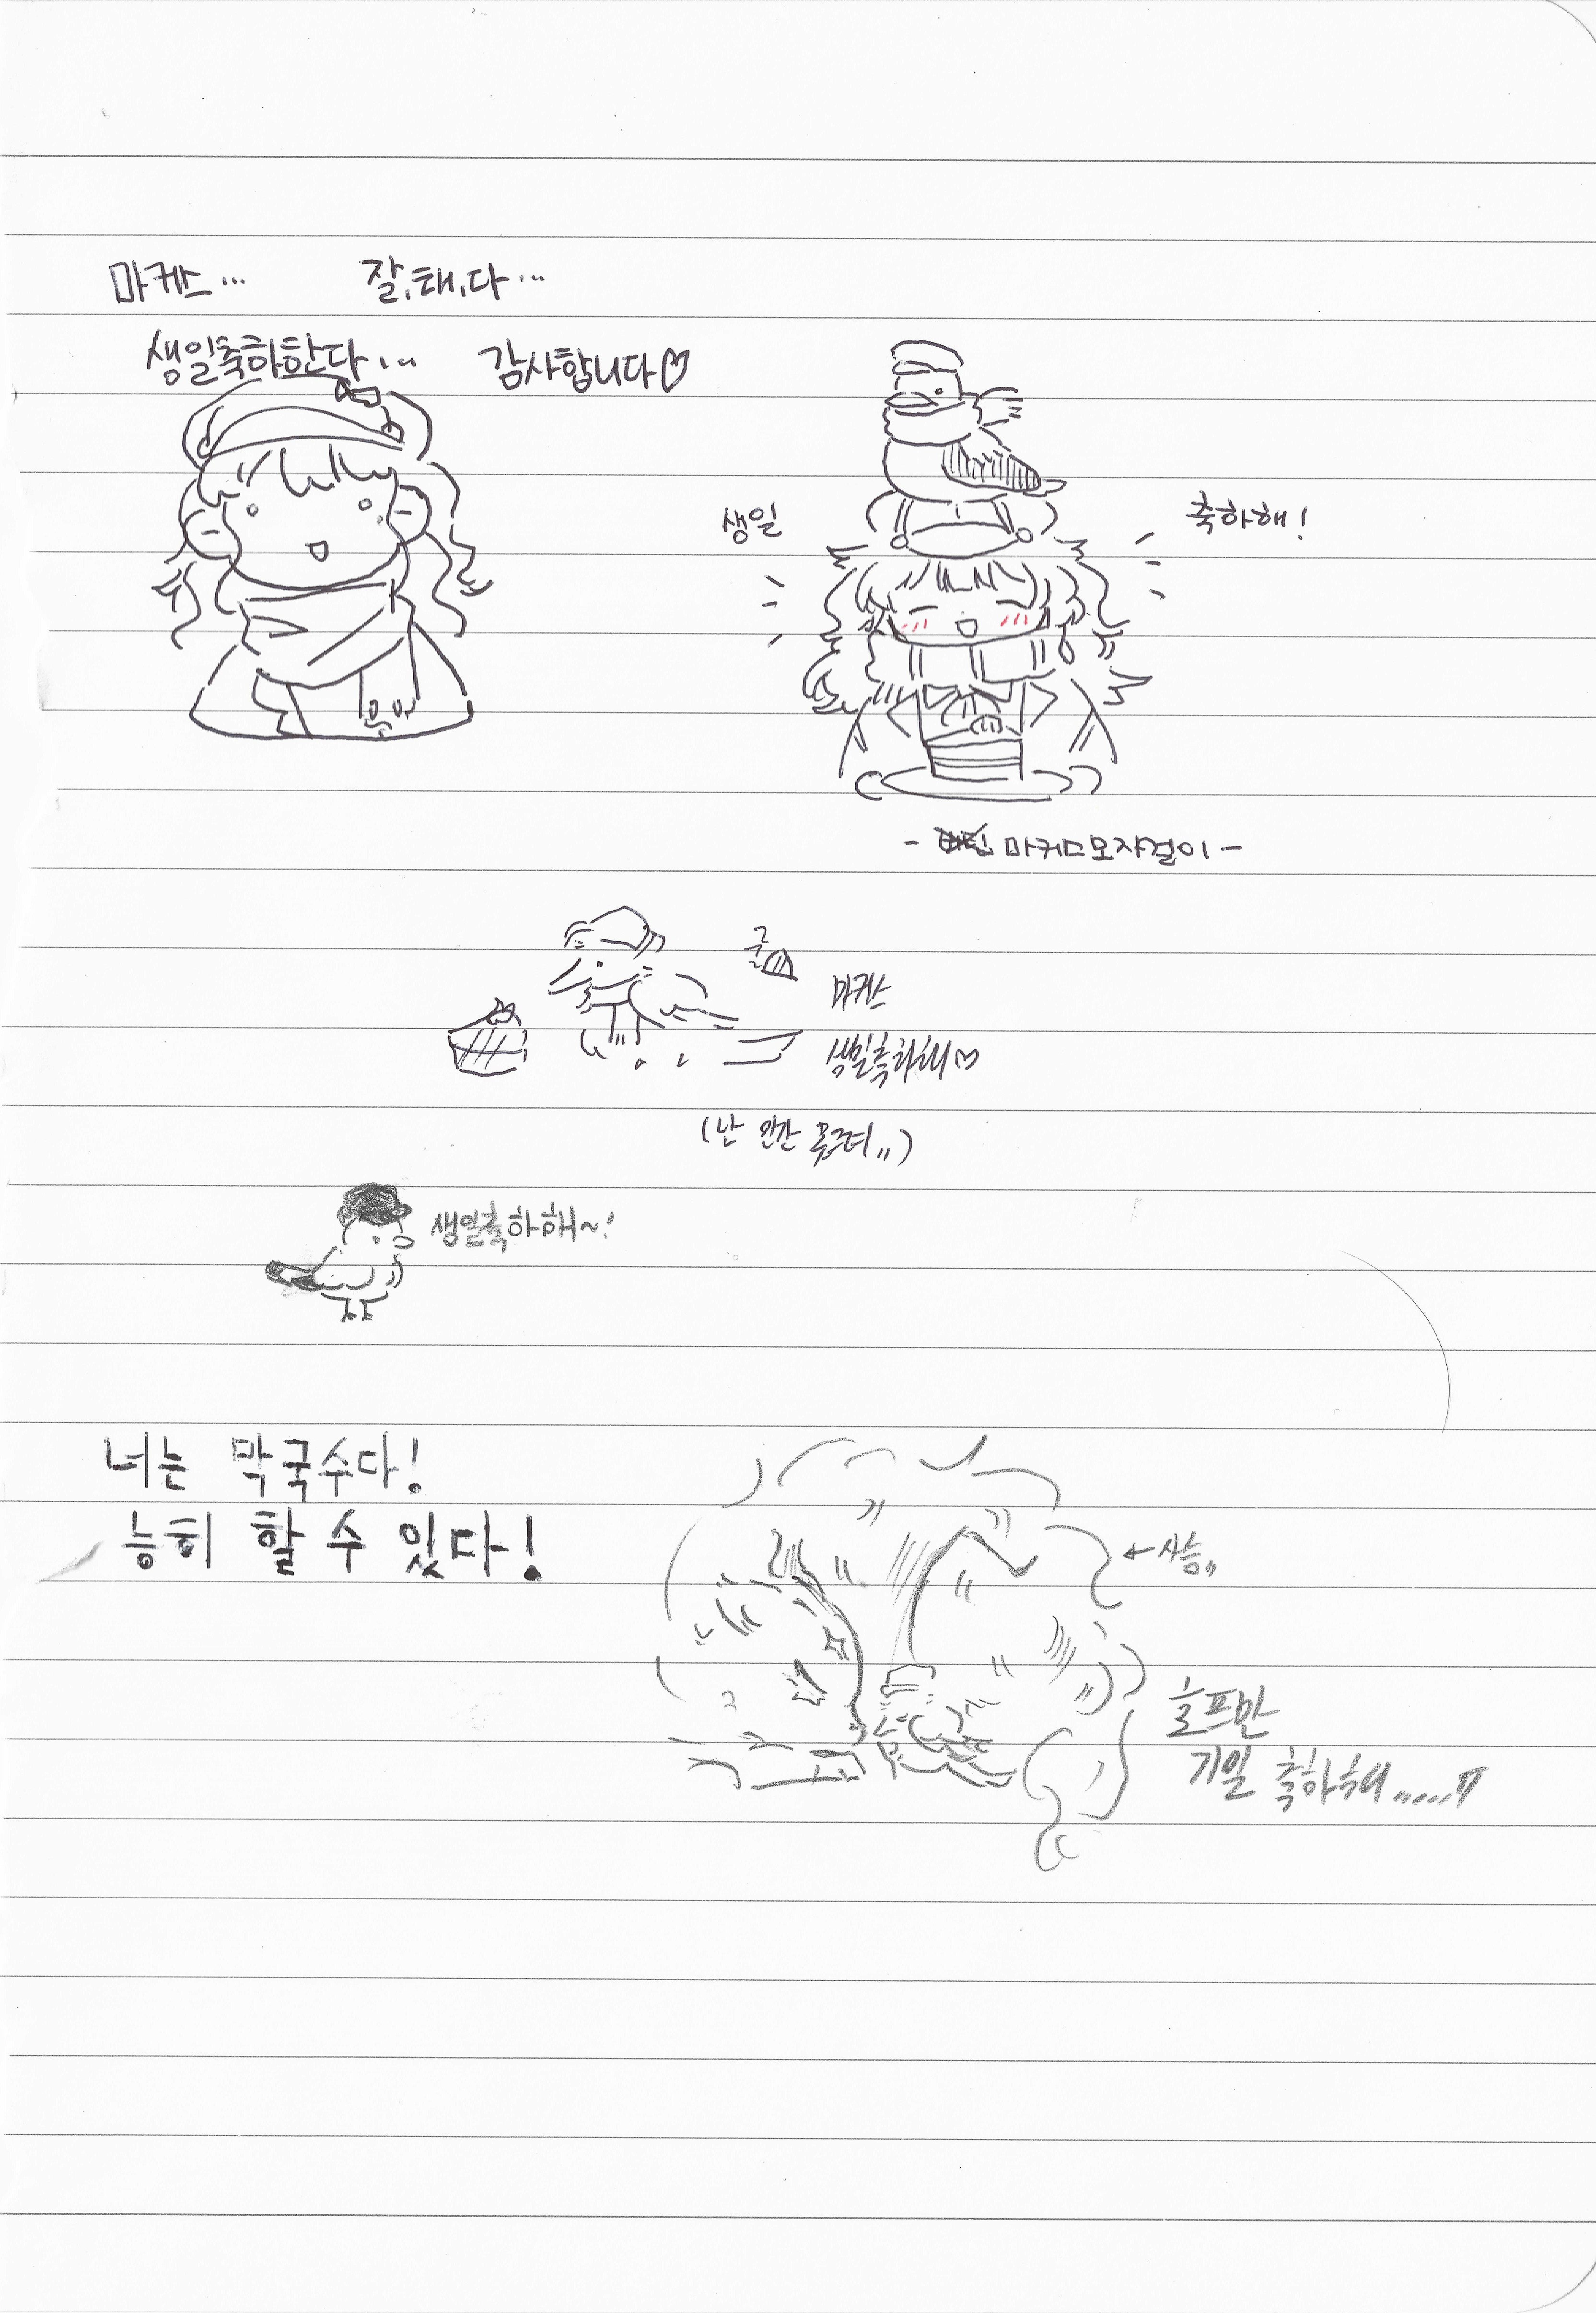 마커스... 잘.태.다...
생일축하한다... 감사합니다♡
생일 축하해!
- 마커스모자걸이 -
귤
마커스
생일축하해♡
생일축하해~!
너는 막국수다!
능히 할 수 있다!
←사슴
호프만
기일 축하해.....ㅠ